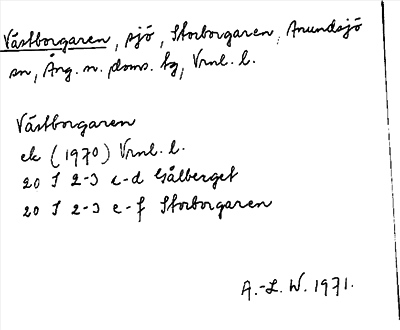 Västborgaren, sjö, Storborgaren, Anundsjö
sn, Ång. n. doms. tg, Vrnl. l.
Västborgaren
ek (1970) Vrnl. l.
20 I 2-3 c-d Gålberget
20 I 2-3 e-f Storborgaren
A.-L. W. 1971.